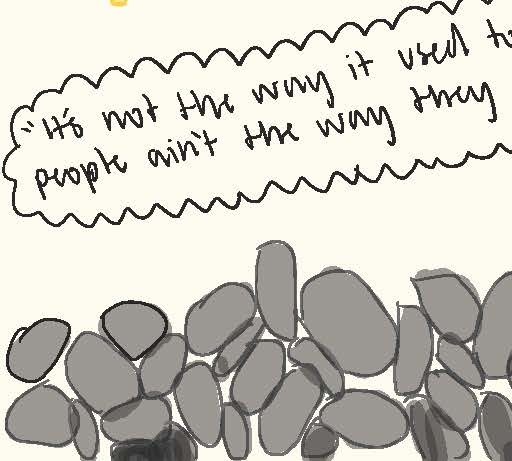 "It's not the way it used to
people ain't the way they